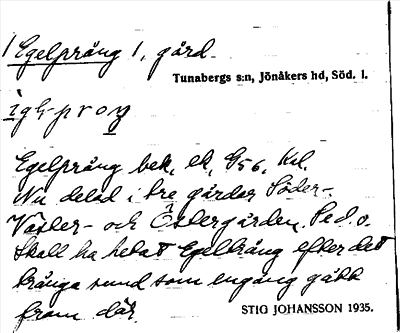 Egelpräng 1, gård.
Tunabergs s:n, Jönåkers hd, Söd. l.
Egelpräng bek, ek, G56, Ksl.
Nu delad i tre gårdar Söder-
Väster- och Östergården. Se d. o.
Skall ha hetat Egeltrång efter det
trånga sund som engång gått
fram där.
STIG JOHANSSON 1935.